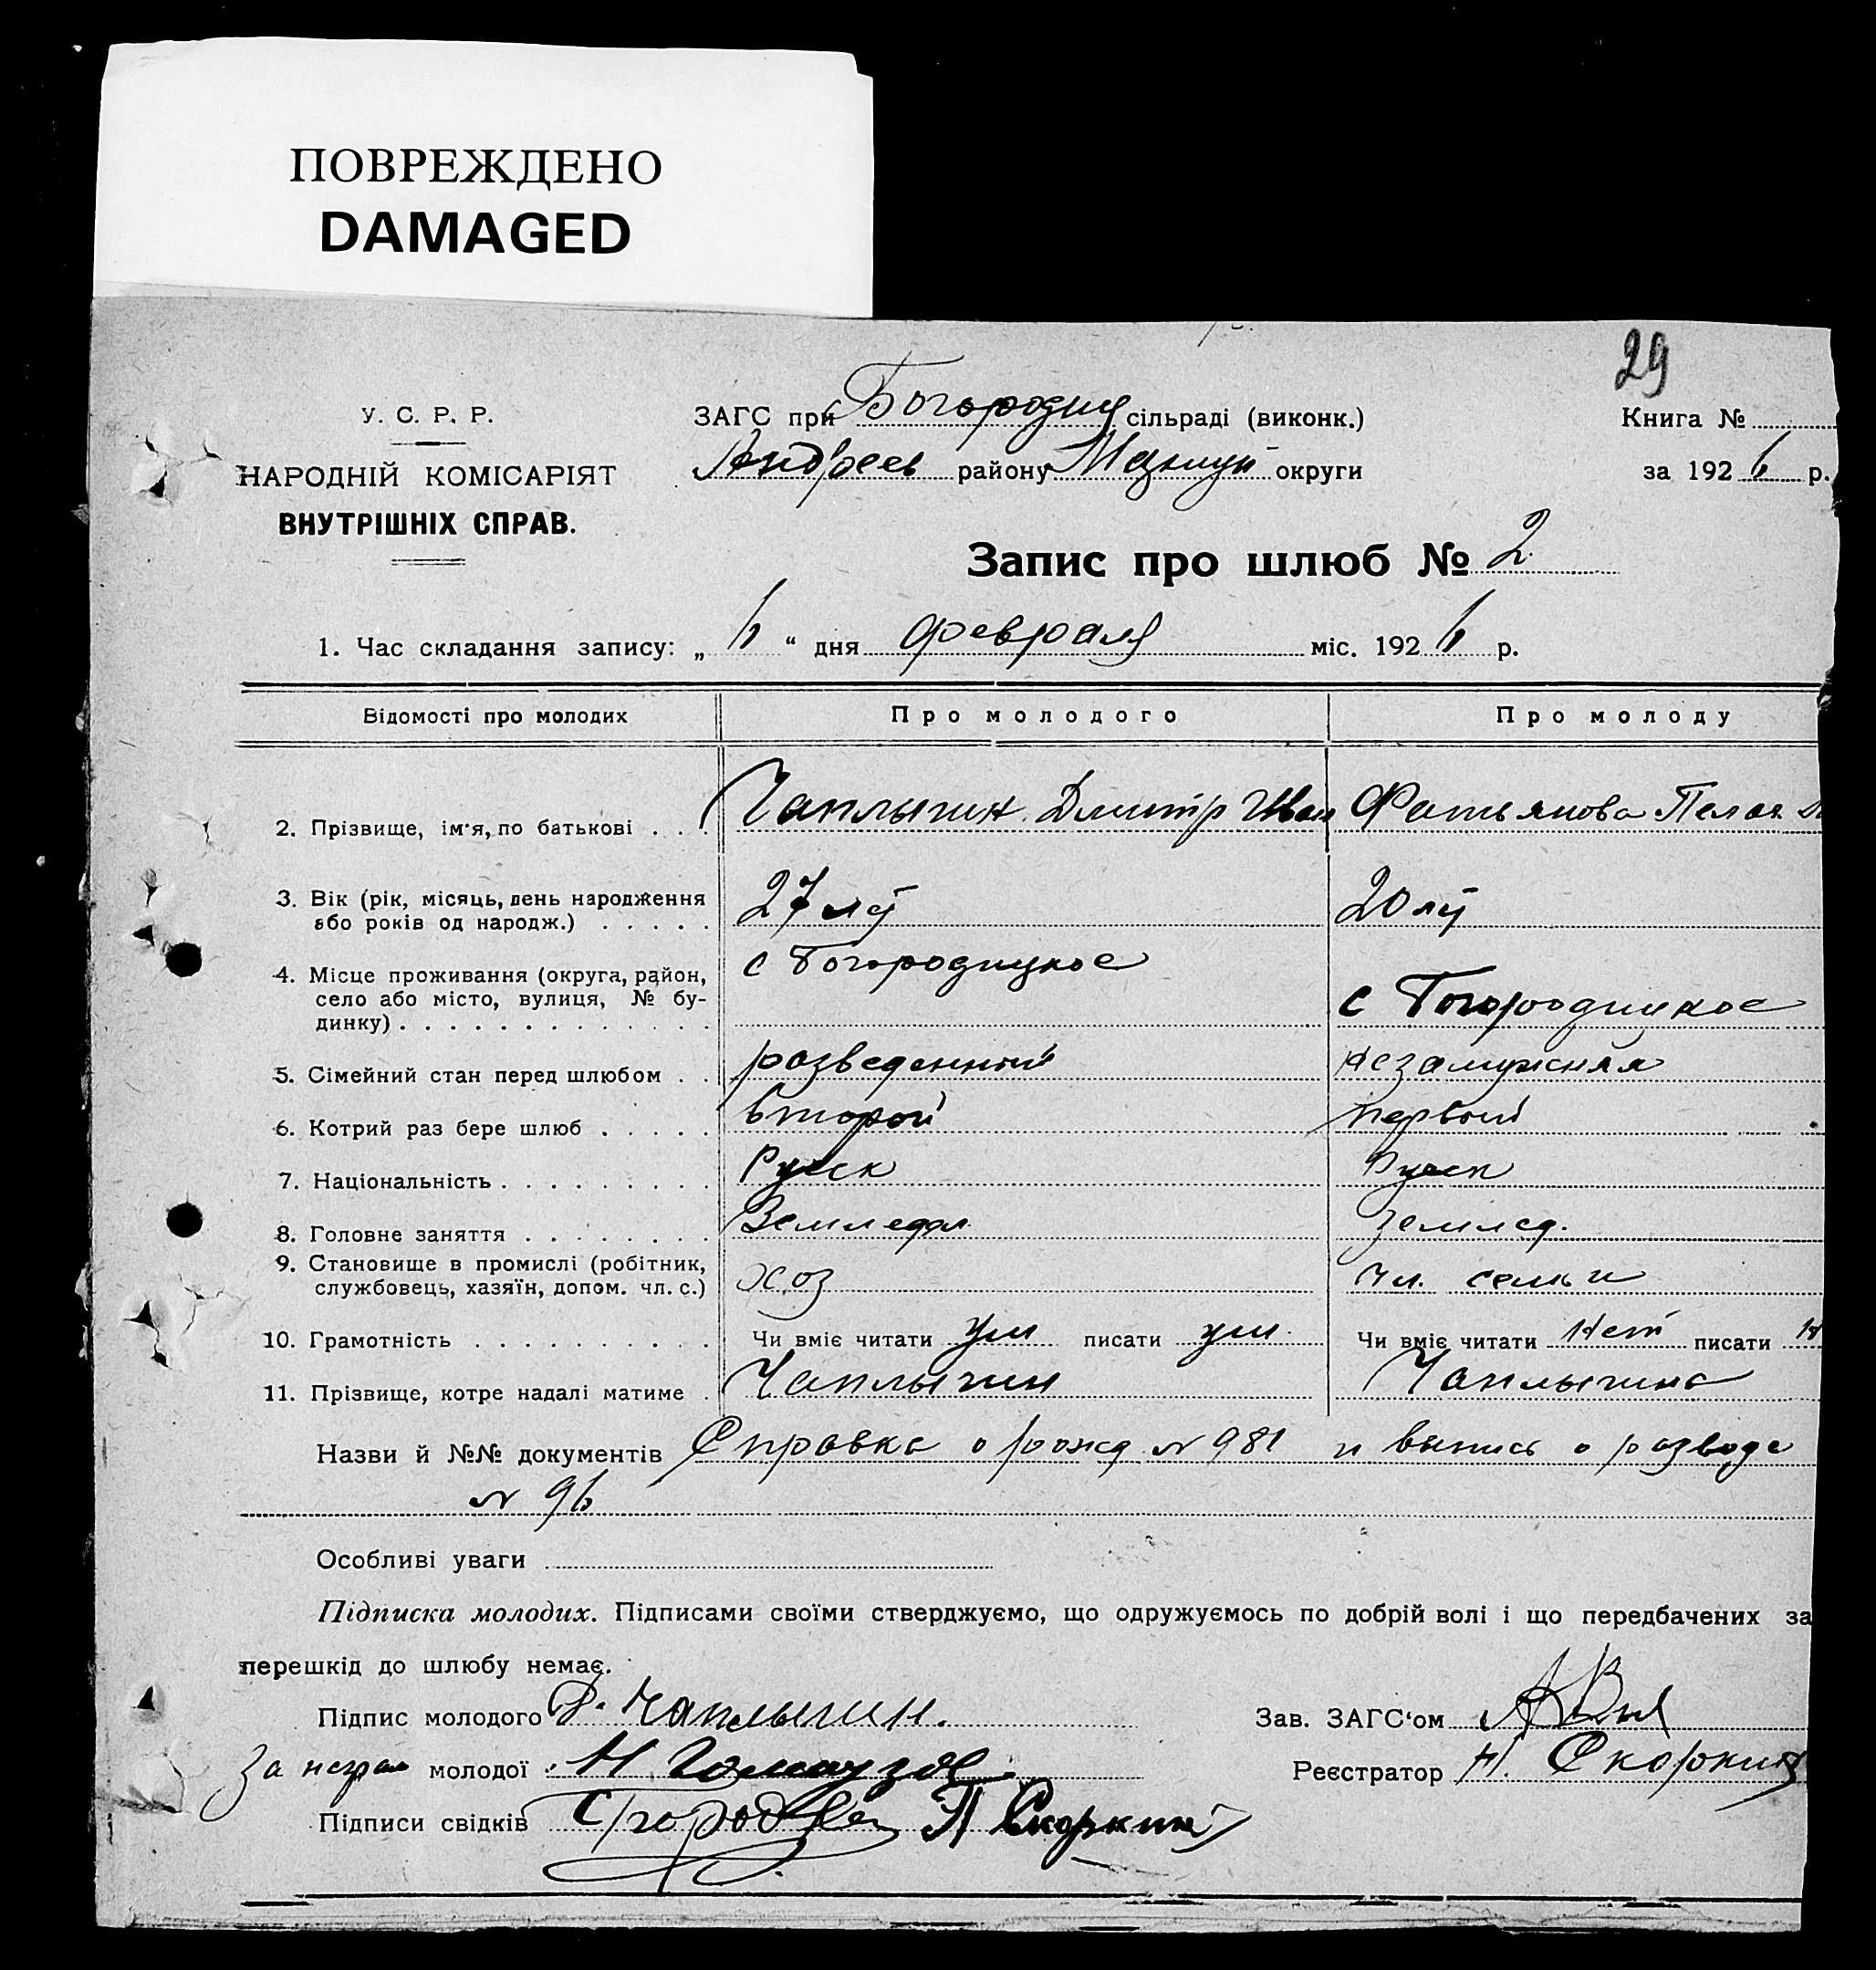 ПОВРЕЖДЕНО
DAMAGED
29
У. С. Р. Р.
НАРОДНІЙ КОМІСАРІЯТ
ВНУТРІШНІХ СПРАВ.
ЗАГС при Богородиц сільраді (виконк.)
Андреев району округи
Книга №
за 1926 р.
Запис про шлюб № 2
1. Час складання запису: „ 6 “ дня февраля міс. 1926 р.
Відомості про молодих Про молодого Про молоду
2. Прізвище, ім'я, по батькові . . . Чаплыгин Дмитр Иван Фатьянова Пелаг
3. Вік (рік, місяць, день народження
або років од народж.) . . . . . 27 лет 20 лет
4. Місце проживання (округа, район,
село або місто, вулиця, № бу-
динку) . . . . . . . . . . . . . с Богородицкое с Богородицкое
5. Сімейний стан перед шлюбом . . разведенный незамужняя
6. Котрий раз бере шлюб . . . . . второй первый
7. Національність . . . . . . . . . Руск Руск
8. Головне заняття . . . . . . . . Земледел Землед.
9. Становище в промислі (робітник,
службовець, хазяїн, допом. чл. с.) хоз чл. семьи
10. Грамотність . . . . . . . . . . Чи вміє читати ум писати ум Чи вміє читати нет писати н
11. Прізвище, котре надалі матиме . Чаплыгин Чаплыгина
Назви й №№ документів Справка о рожд № 981 и выпись о разводе
№ 96
Особливі уваги
Підписка молодих. Підписами своїми стверджуємо, що одружуємось по добрій волі і що передбачених за
перешкід до шлюбу немає.
Підпис молодого Д. Чаплыгин.
Зав. ЗАГС'ом
За неграм молодої Н
Реєстратор П. Скоркин
Підписи свідків П Скоркин